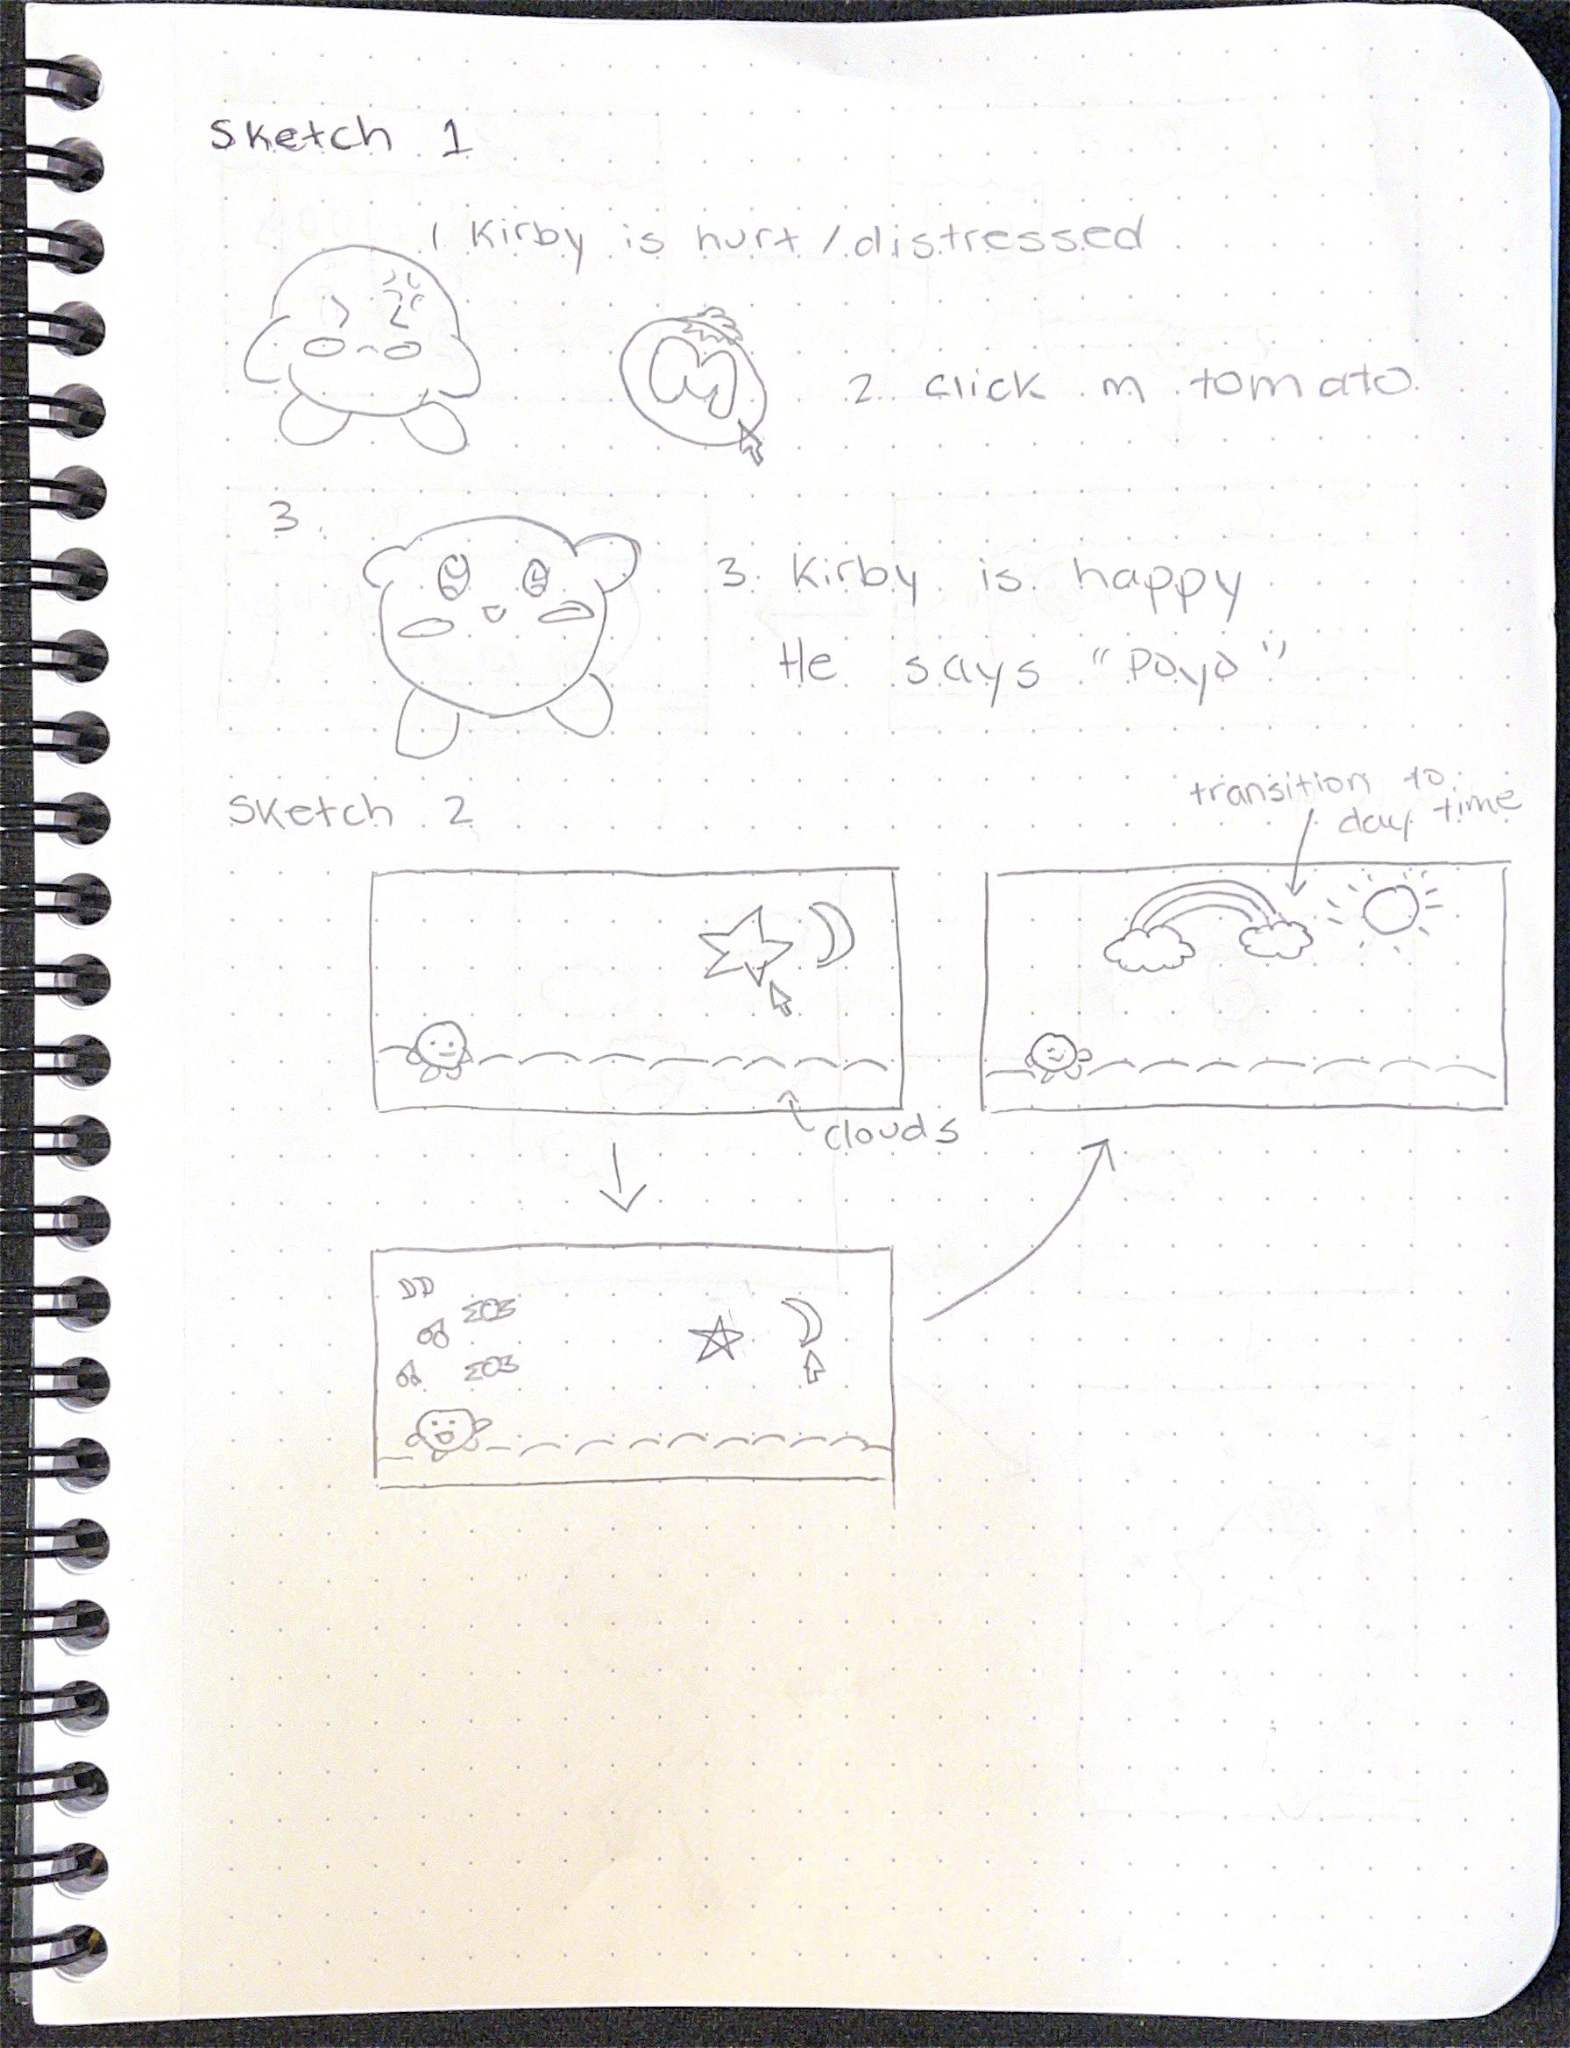 Sketch 1
1 Kirby is hurt / distressed
M
2. click m tomato
3.
3. Kirby is happy
He says "Poyo"
Sketch 2
transition to
day time
clouds